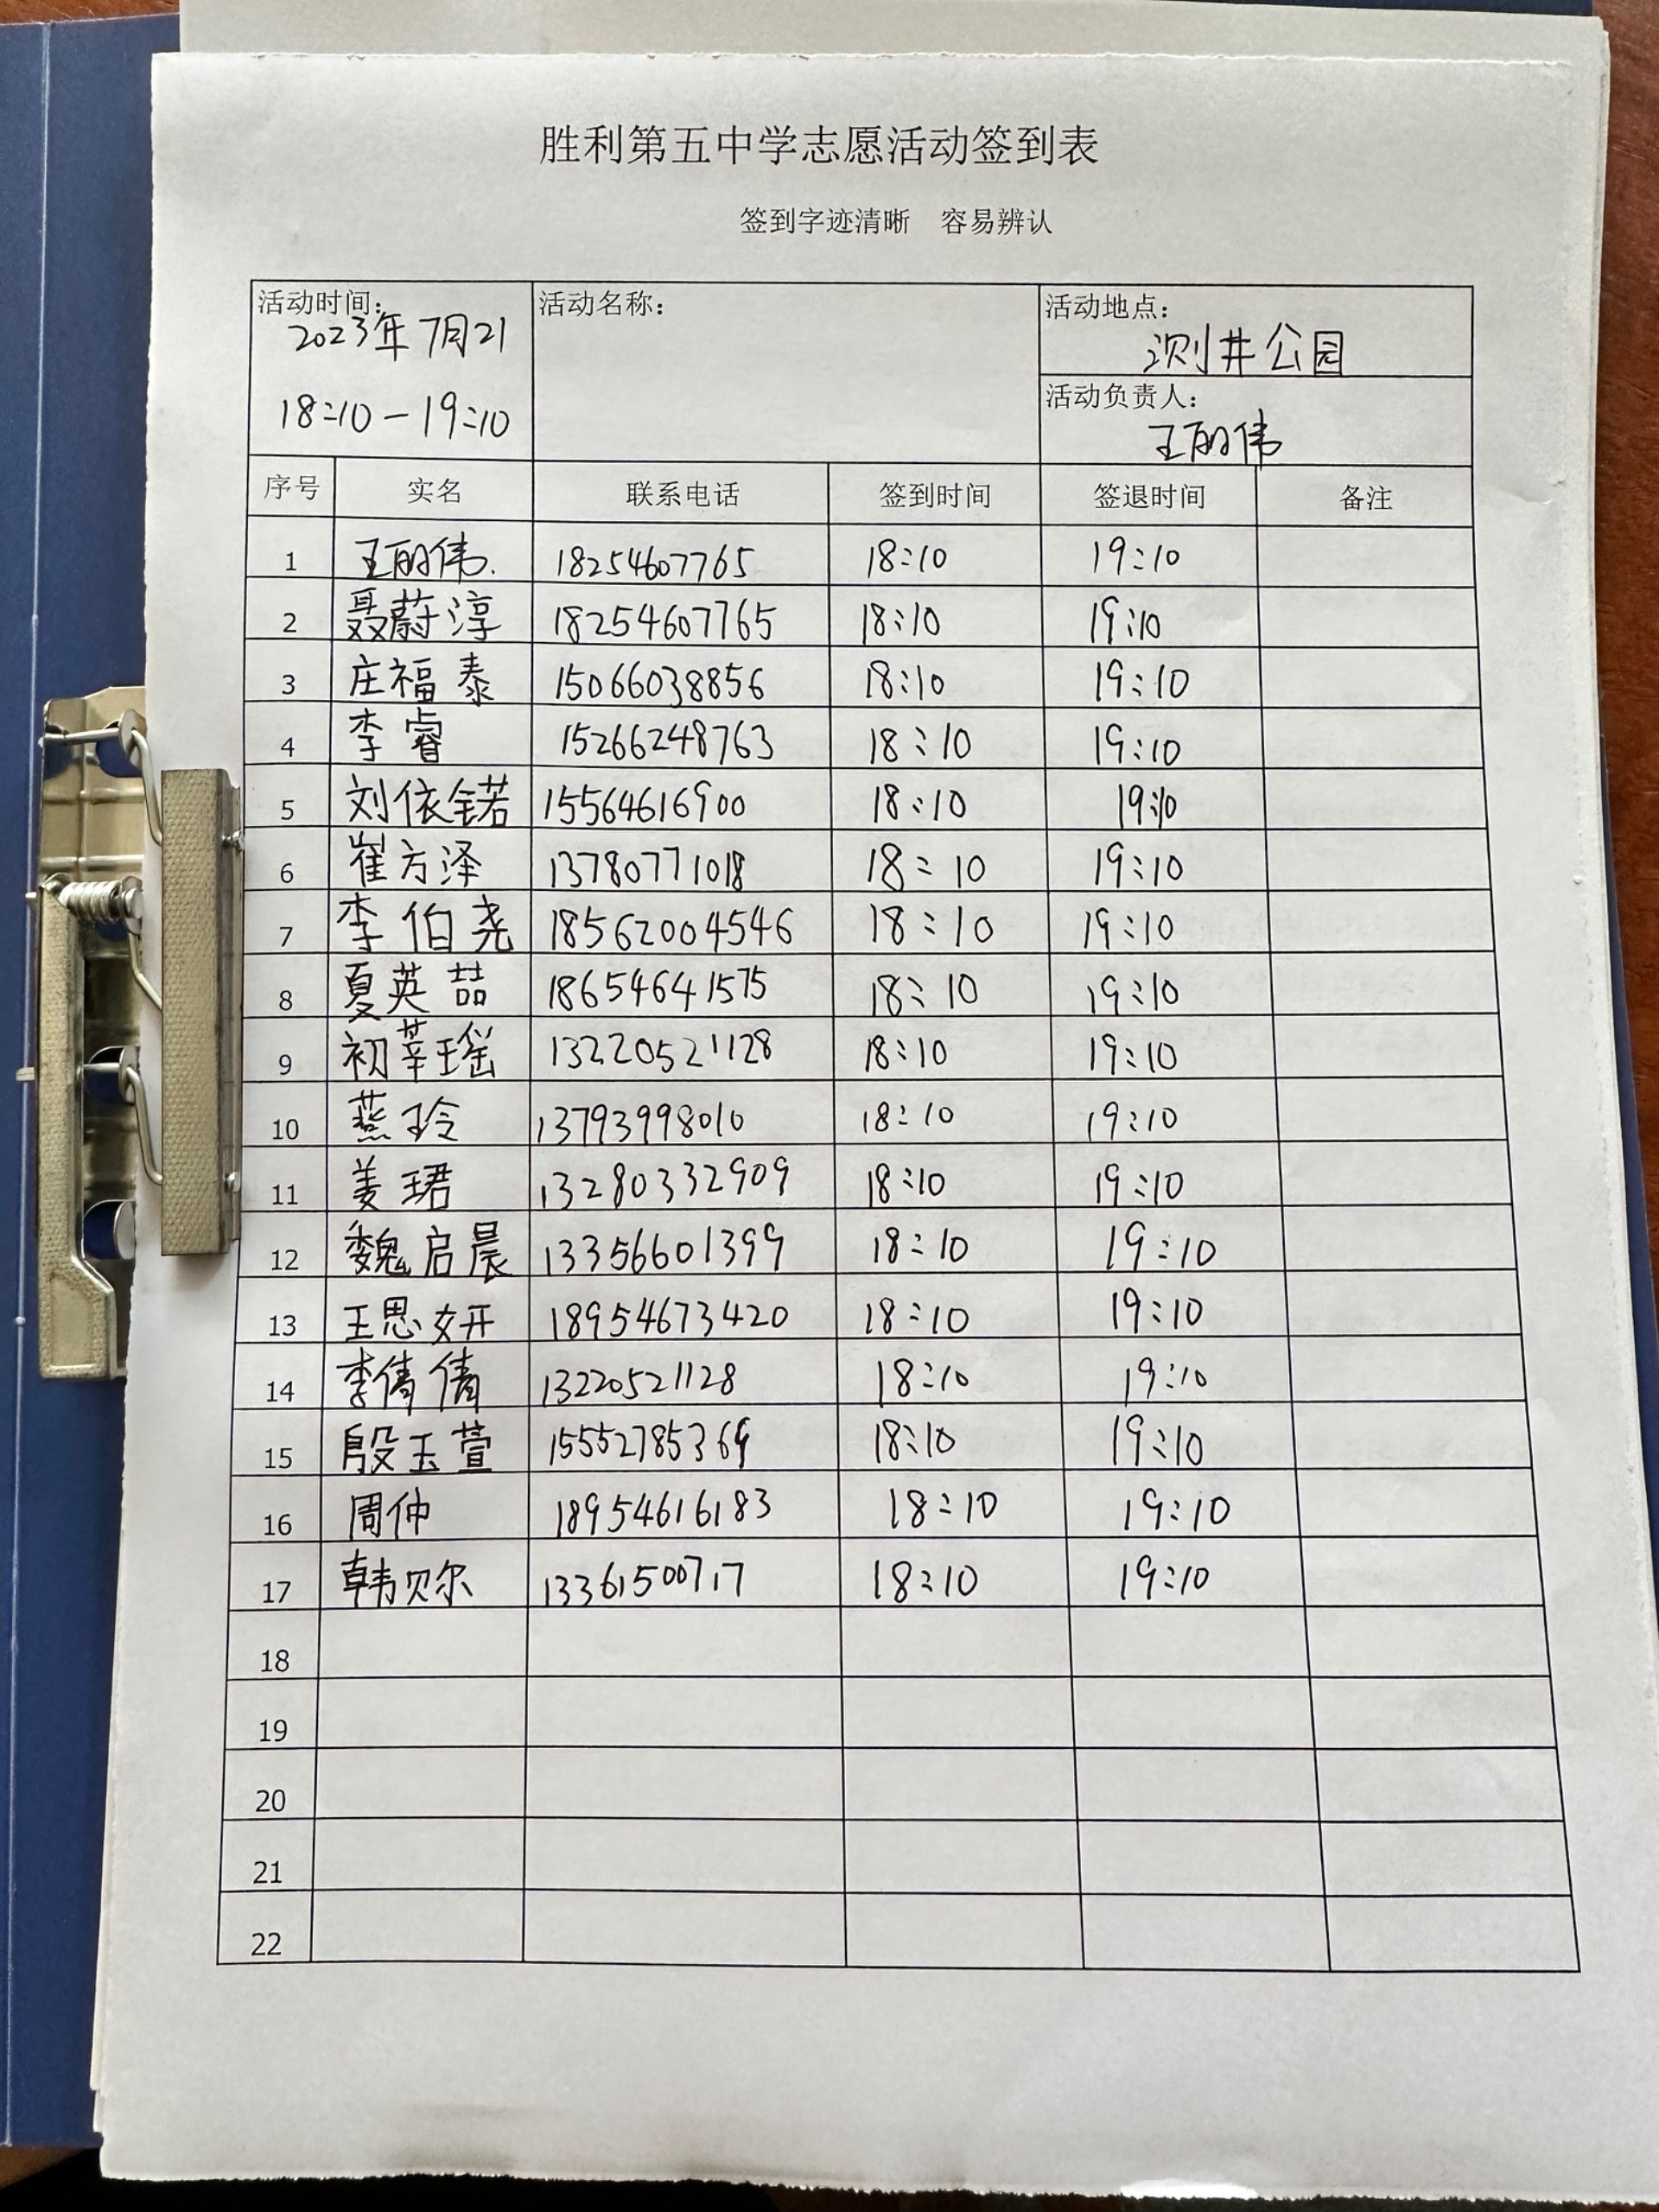 胜利第五中学志愿活动签到表
签到字迹清晰 容易辨认
活动时间: 活动名称: 活动地点:
2023年7月21 测井公园
18:10-19:10 活动负责人:
王丽伟
序号 实名 联系电话 签到时间 签退时间 备注
1 王丽伟. 18254607765 18:10 19:10
2 聂蔚淳 18254607765 18:10 19:10
3 庄福泰 15066038856 18:10 19:10
4 李睿 15266248763 18:10 19:10
5 刘依锘 15564616900 18:10 19:10
6 崔方泽 13780771018 18:10 19:10
7 李伯尧 18562004546 18:10 19:10
8 夏英喆 18654641575 18:10 19:10
9 初莘瑶 13220521128 18:10 19:10
10 燕玲 13793998010 18:10 19:10
11 姜珺 13280332909 18:10 19:10
12 魏启晨 13356601399 18:10 19:10
13 王思妍 18954673420 18:10 19:10
14 李倩倩 13220521128 18:10 19:10
15 殷玉萱 15552785369 18:10 19:10
16 周仲 18954616183 18:10 19:10
17 韩贝尔 13361500717 18:10 19:10
18
19
20
21
22